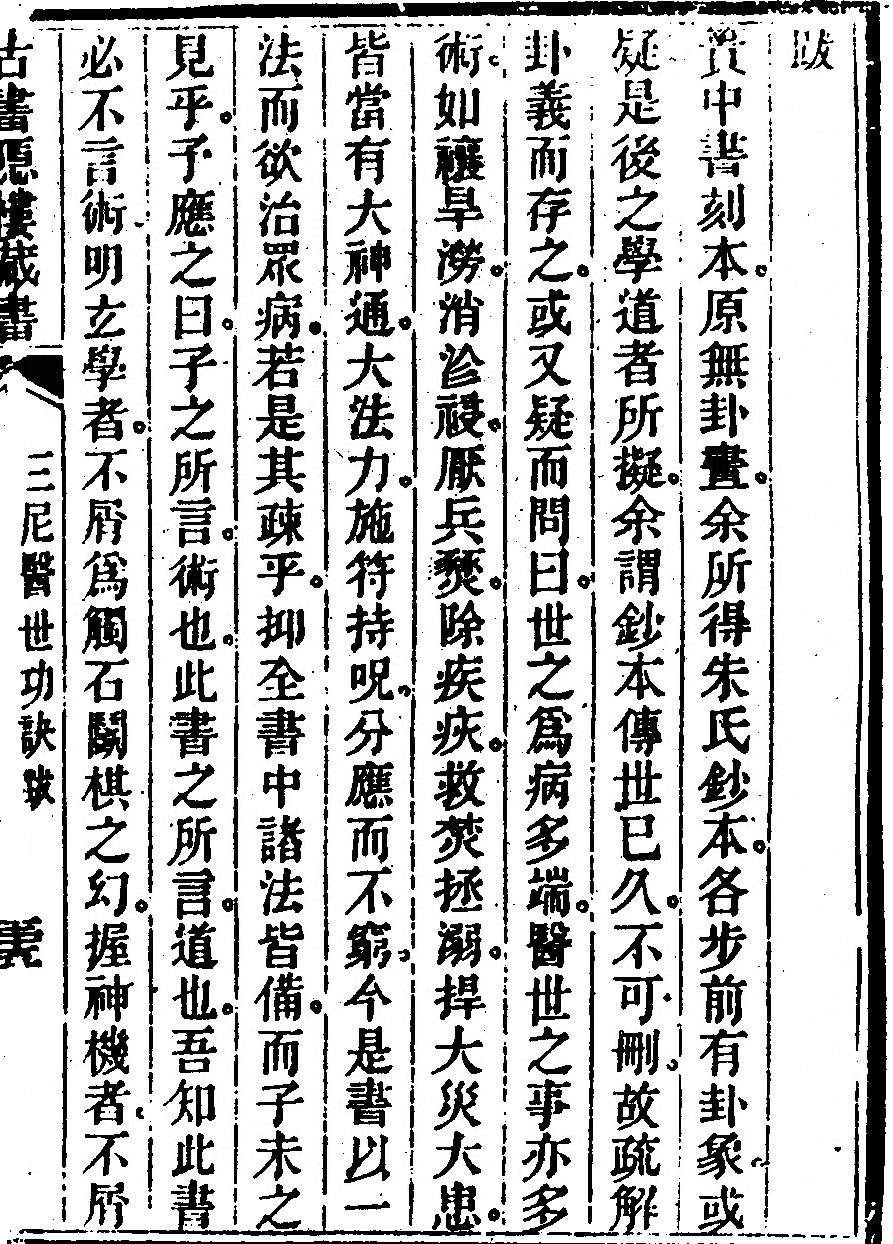 跋
賷中書刻本。原無卦畫。余所得朱氏鈔本。各步前有卦象。或
疑是後之學道者所擬。余謂鈔本傳世已久。不可刪。故疏解
卦義而存之。或又疑而問曰。世之爲病多端。醫世之事亦多
術。如禳旱澇。消沴祲。厭兵燹。除疾疢。救焚拯溺。捍大災大患。
皆當有大神通。大法力。施符持呪。分應而不窮。今是書以一
法而欲治眾病。若是其疎乎。抑全書中諸法皆備。而子未之
見乎。予應之曰。子之所言。術也。此書之所言。道也。吾知此書
必不言術。明立學者。不屑爲觸石鬭棋之幻。握神機者。不屑
三尼醫世功訣跋
古書隱樓藏書